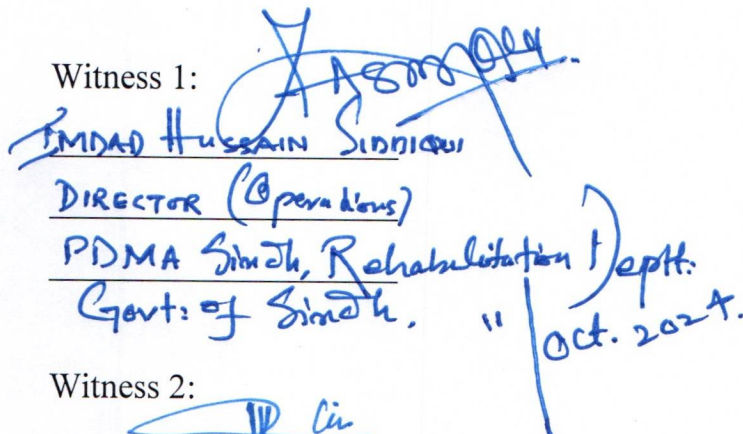 Witness 1:
IMDAD HUSSAIN SIDDIQUI
DIRECTOR (Operations)
PDMA Sindh, Rehabilitation Deptt:
Govt: of Sindh. " Oct. 2024.
Witness 2: